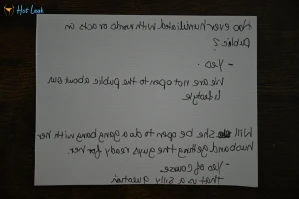 Hot Leak
Hoo ever humiliated with words or acts in
Public?
- Yes.
We are not open to the public about our
lifestyle
Will she be open to do a gang bang with her
husband getting the guys ready for her.
- Yes of course
That is a silly question